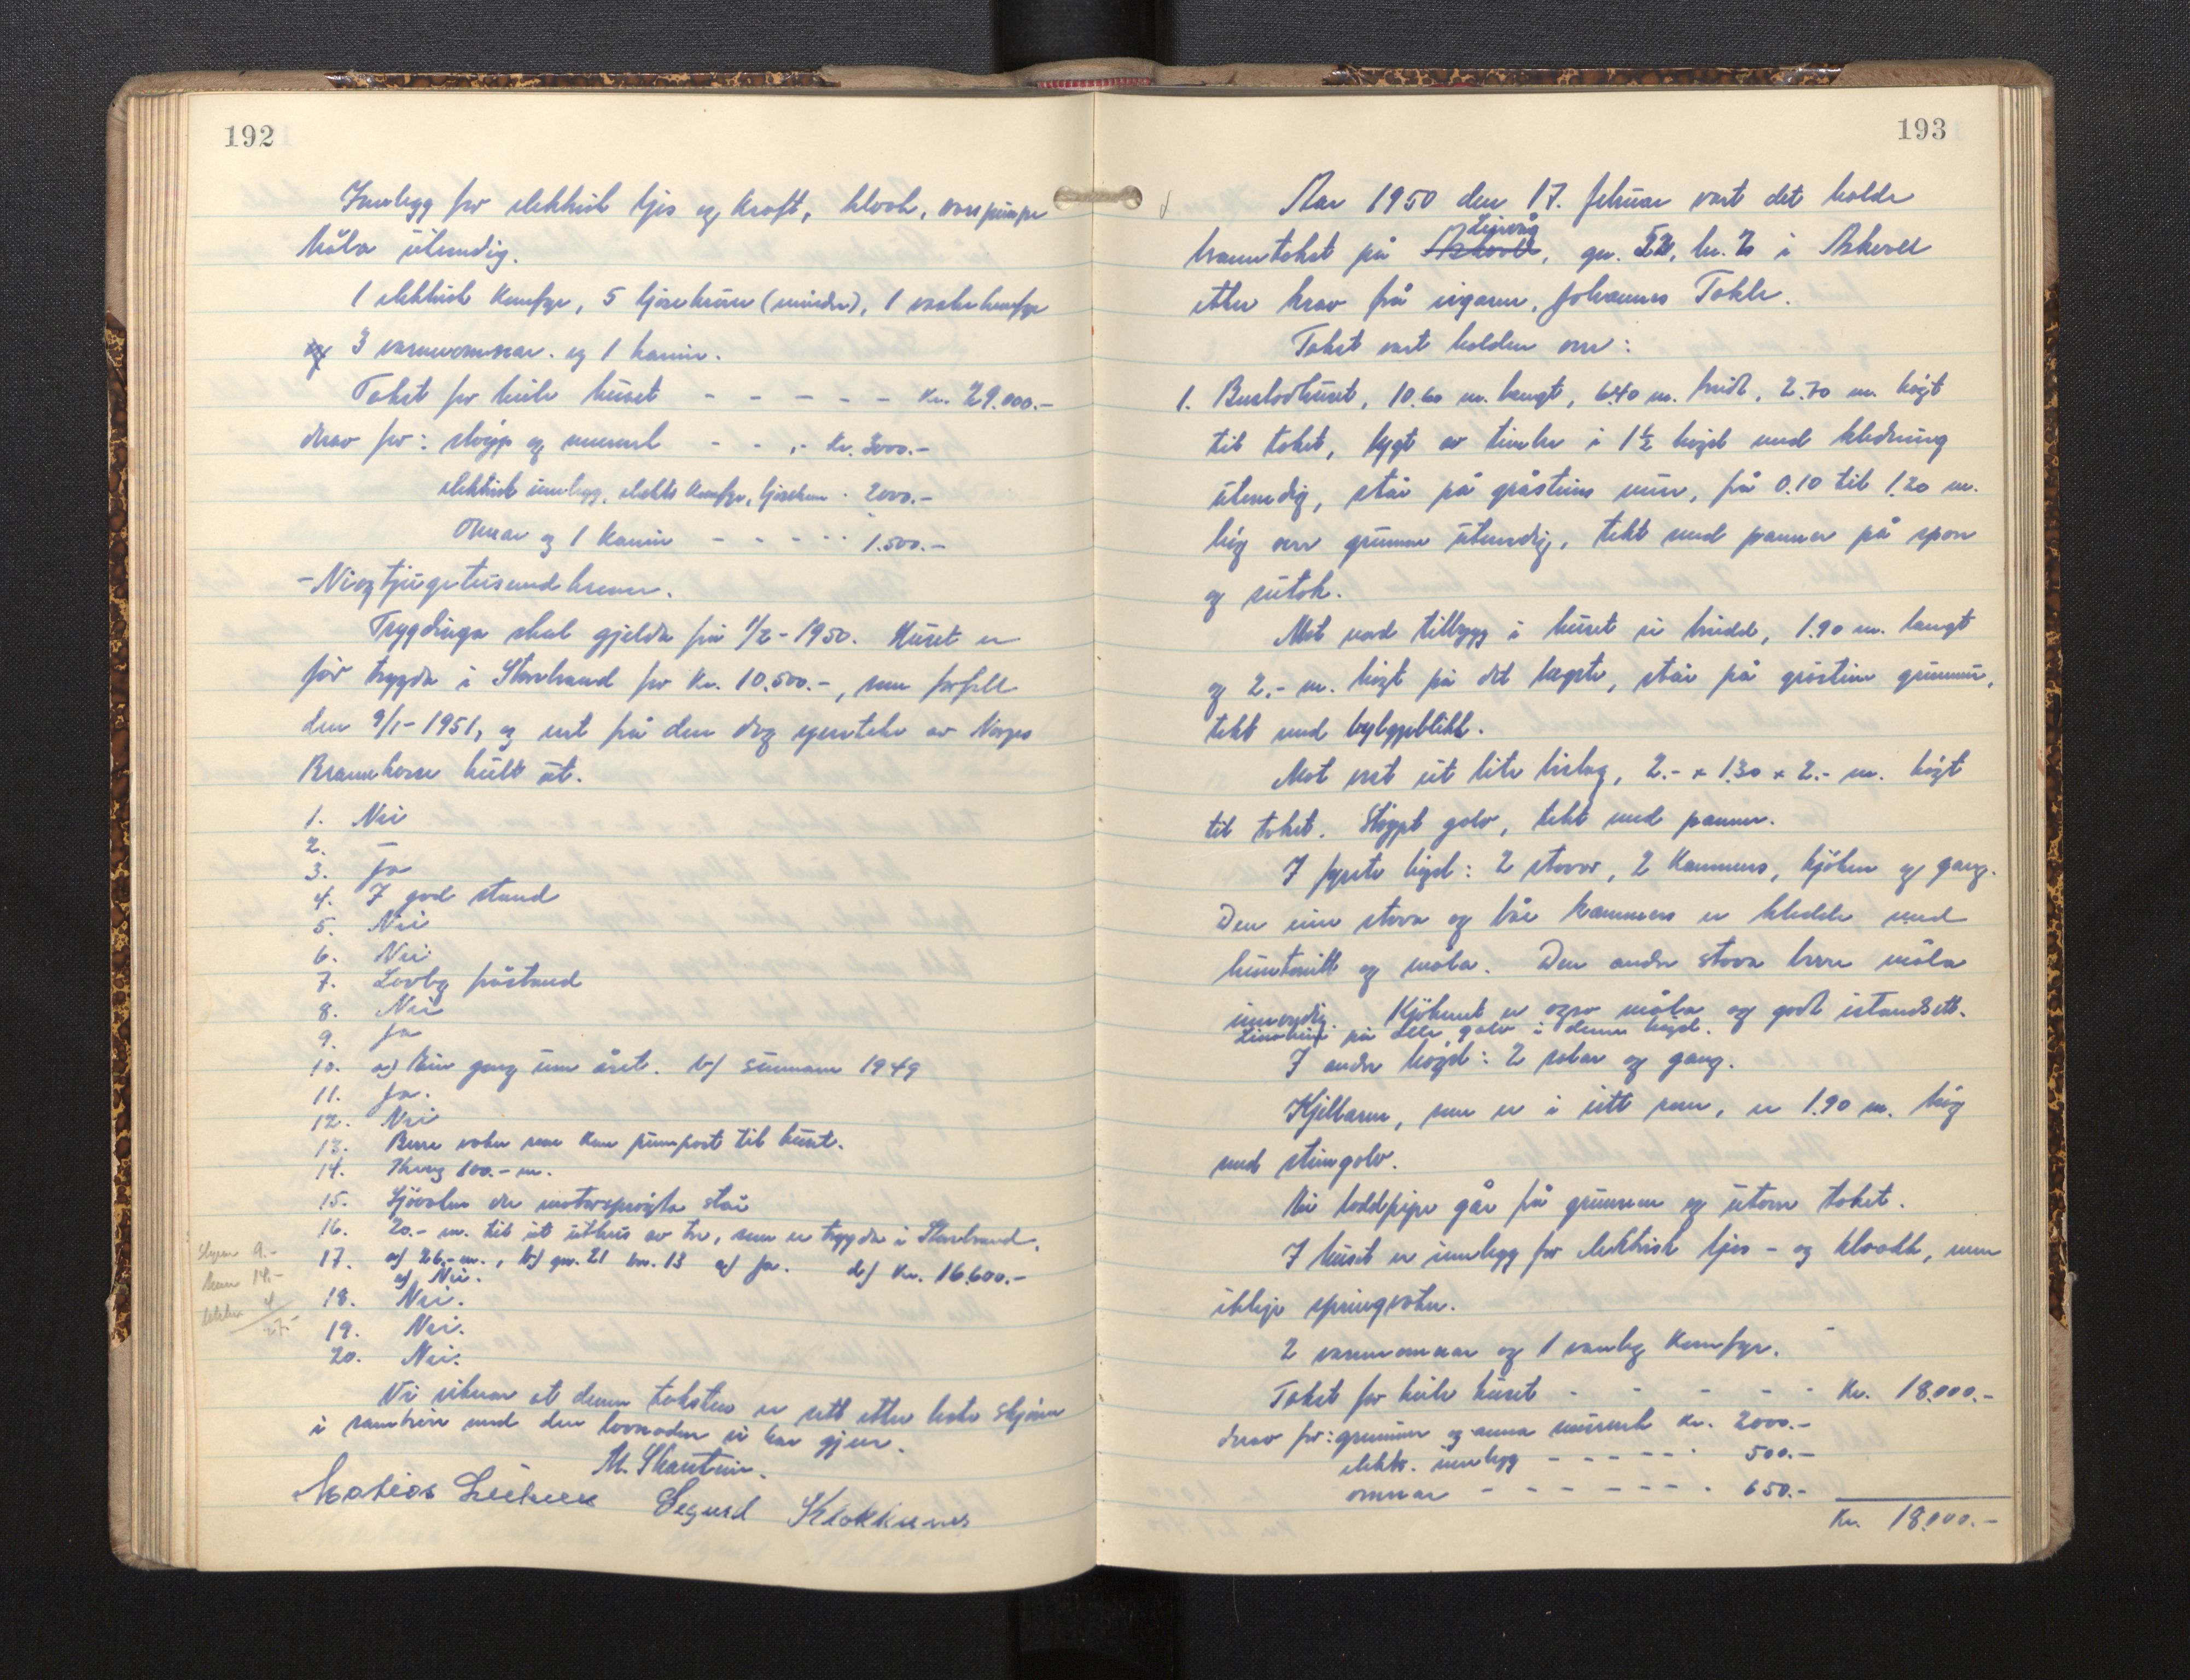 192
Innlegg for elektrisk ljos og kraft, kloakk, vasspumpe
måla utvendig.
1 elektrisk komfyr, 5 ljosekruner (mindre), 1 vanleg komfyr
og 3 varmeomnar. og 1 kamin.
Takst for heile huset - - - - - Kr. 29.000.-
derav for: støyp og murverk - - - Kr. 3000.-
elektrisk innlegg, elektr. komfyr, ljoskrun. 2000.-
Omnar og 1 kamin - - - - - 1.500.-
- Niogtjugetusund kroner.
Trygdinga skal gjelda frå 1/2 - 1950. Huset er
før trygda i Storebrand for Kr. 10.500.-, som forfell
den 9/1 - 1951, og vert frå den dag yverteke av Norges
Brannkasse heilt ut.
1. Nei
2. –
3. Ja
4. I god stand
5. Nei
6. Nei
7. Lovleg fråstand
8. Nei
9. Ja
10. a) Ein gong um året. b) Sumaren 1949
11. Ja.
12. Nei
13. Berre vatn som kan pumpast til huset.
14. Kring 100.- m.
15. Sjøvolen der motorsprøyta står
16. 20.- m. til eit uthus av tre, som er trygda i Storebrand.
17. a) 26.- m., b) gnr. 21 bnr. 13 c) Ja. d) Kr. 16.600.-
e) Nei.
18. Nei.
19. Nei.
20. Nei.
9.-
14.-
4
27.-
Vi vitnar at denne taksten er sett etter beste skjønn
i samhøve med den lovnaden vi har gjeve.
M. Skarstein.
Matias Sigurd Klokkernes
193
Aar 1950 den 17. februar vart det halde
Leirvåg
branntakst på Askvoll, gnr. 22, bnr. 7 i Askvoll
etter krav frå eigaren, Johannes Takle.
Takst vart halden over:
1. Bustadhuset, 10.60 m. langt, 6.40 m. breidt, 2.70 m. høgt
til taket, bygt av timber i 1½ høgd med kledning
utvendig, står på gråsteins mur, frå 0.10 til 1.20 m.
høg over grunnen utvendig, tekt med panner på spon
og sutak.
Mot nord tilbygg i huset si breidd, 1.90 m. langt
og 2.- m. høgt på det lægste, står på gråstein grunnmur,
tekt med bylgjeblikk.
Mot vest eit lite bislag, 2.- x 1.30 x 2.- m. høgt
til taket. Støypt golv, tekt med panner.
I fyrste høgd: 2 stover, 2 kammers, kjøken og gang.
Den eine stova og båe kammers er kledde med
huntonitt og måla. Den andre stova berre måla
innvendig. Kjøkenet er ogso måla og godt istandsett.
Linoleum på alle golv i denne høgd.
I andre høgd: 2 salar og gang.
Kjellaren, som er i eitt rom, er 1.90 m. høg
med steingolv.
Ei loddpipe går frå grunnen og utom taket.
I huset er innlegg for elektrisk ljos - og kloakk, men
ikkje springvatn.
2 varmeomnar og 1 vanleg komfyr.
Takst for heile huset - - - - - Kr. 18.000.-
derav for: grunnmur og anna murverk Kr. 2000.-
elektr. innlegg - - - - - 500.-
omnar - - - - - - 650.-
Kr. 18.000.-